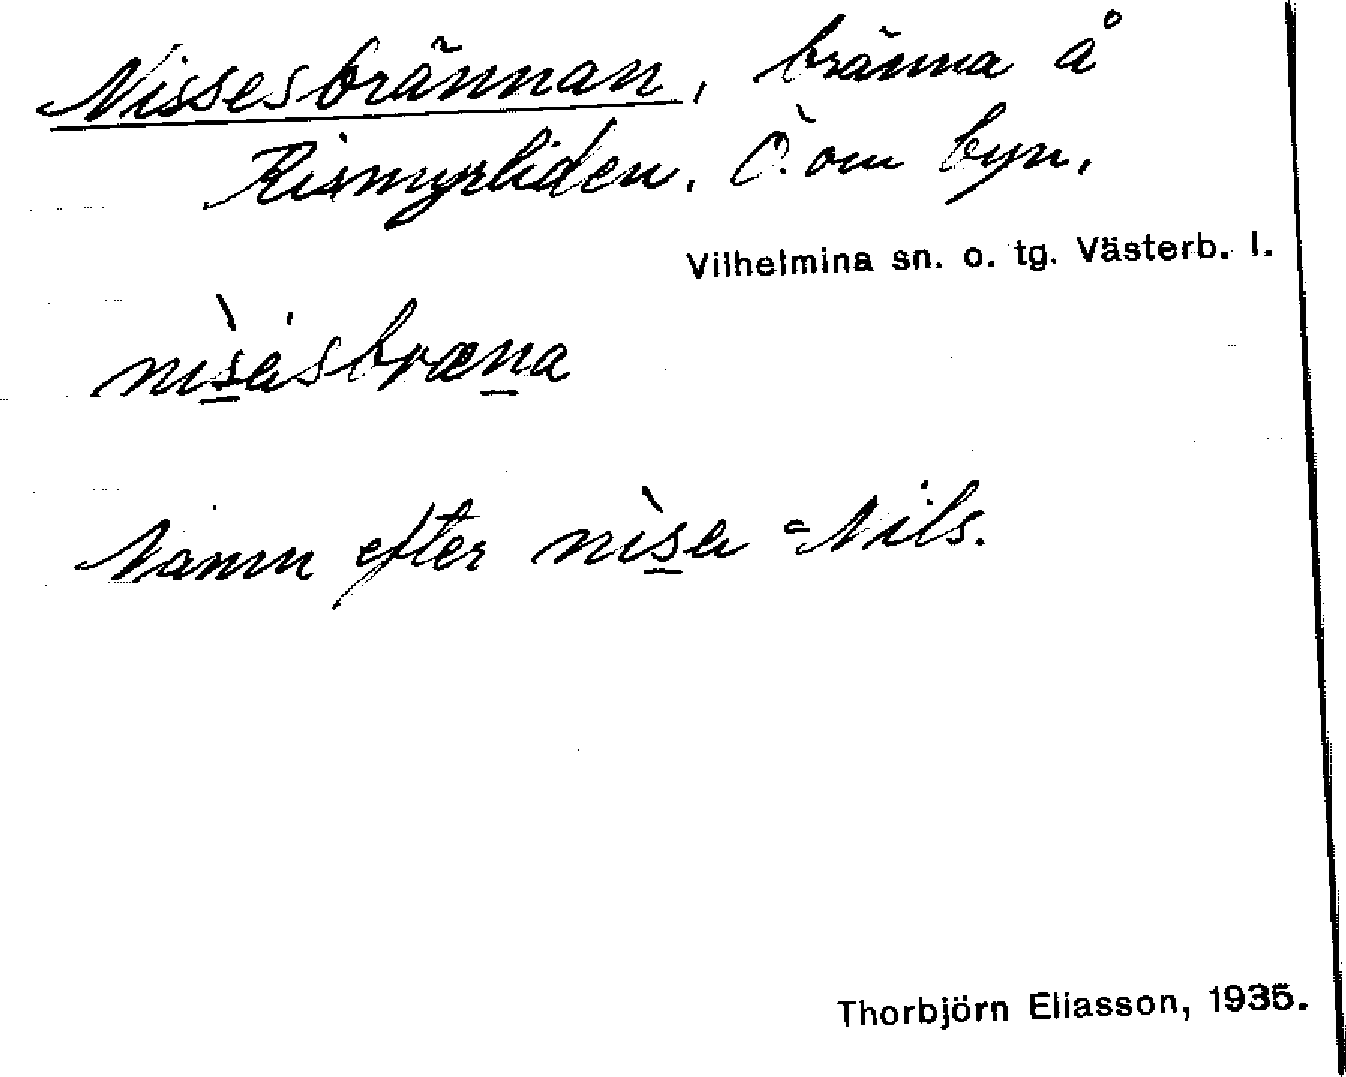 Nissesbrännan, bränna å
Rismyrliden. Ö. om byn.
Vilhelmina sn. o. tg. Västerb. l.
nìsa̍sbræna
Namn efter nìsa = Nils.
Thorbjörn Eliasson, 1935.